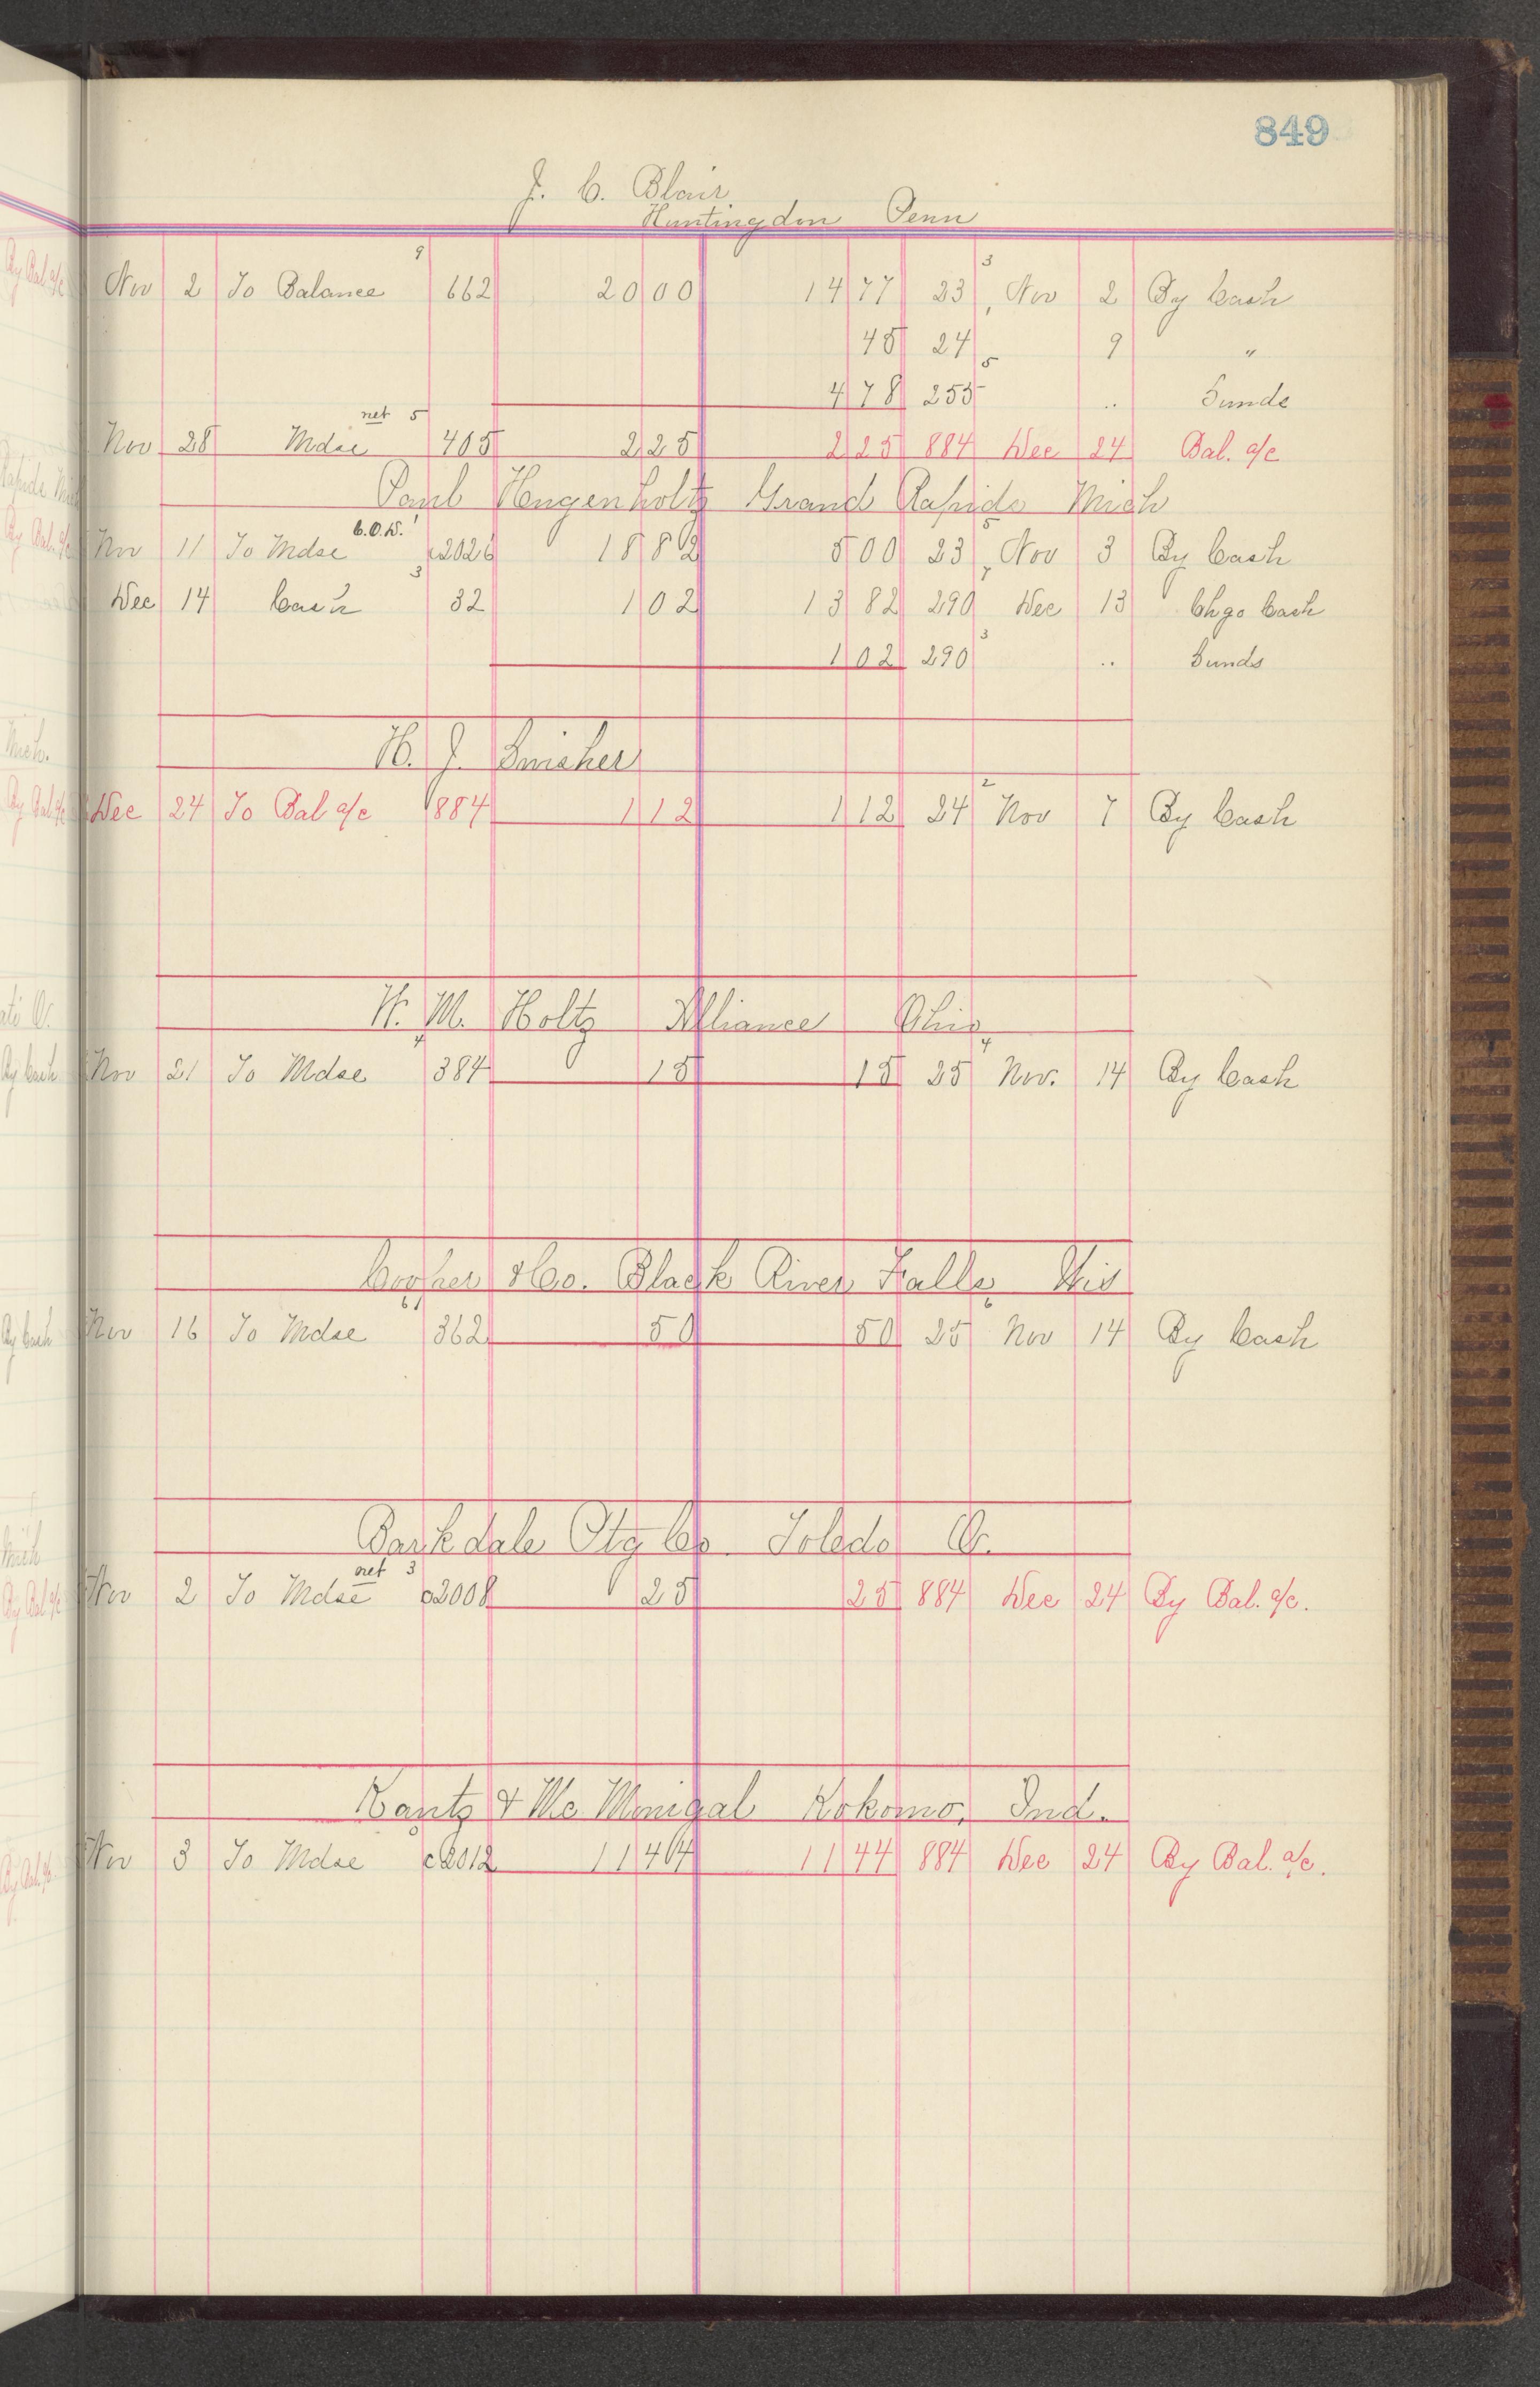 849
J. C. Blair
Huntingdon Penn
Nov 2 To Balance 9 662 20 00 14 77 23 3 Nov 2 By Cash
45 24 9 "
4 78 255 5 .. Sunds
Nov 28 Mdse net 5 405 2 25 2 25 884 Dec 24 Bal. a/c
Paul Hengenholtz Grand Rapids Mich
Nov 11 To Mdse C.O.D. c2026 18 82 5 00 23 5 Nov 3 By Cash
Dec 14 Cash 3 32 1 02 13 82 290 7 Dec 13 Chgo Cash
1 02 290 3 .. Sunds
H. J. Swisher
Dec 24 To Bal a/c 884 1 12 1 12 24 2 Nov 7 By Cash
W. M. Holtz Alliance Ohio
Nov 21 To Mdse 4 384 15 15 25 4 Nov. 14 By Cash
Cooper & Co. Black River Falls Wis
Nov 16 To Mdse 6 362 50 50 25 6 Nov 14 By Cash
Barkdale Ptg Co. Toledo O.
Nov 2 To Mdse net 3 c2008 25 25 884 Dec 24 By Bal. a/c.
Kantz & McMonigal Kokomo, Ind.
Nov 3 To Mdse c2012 11 44 11 44 884 Dec 24 By Bal. a/c.